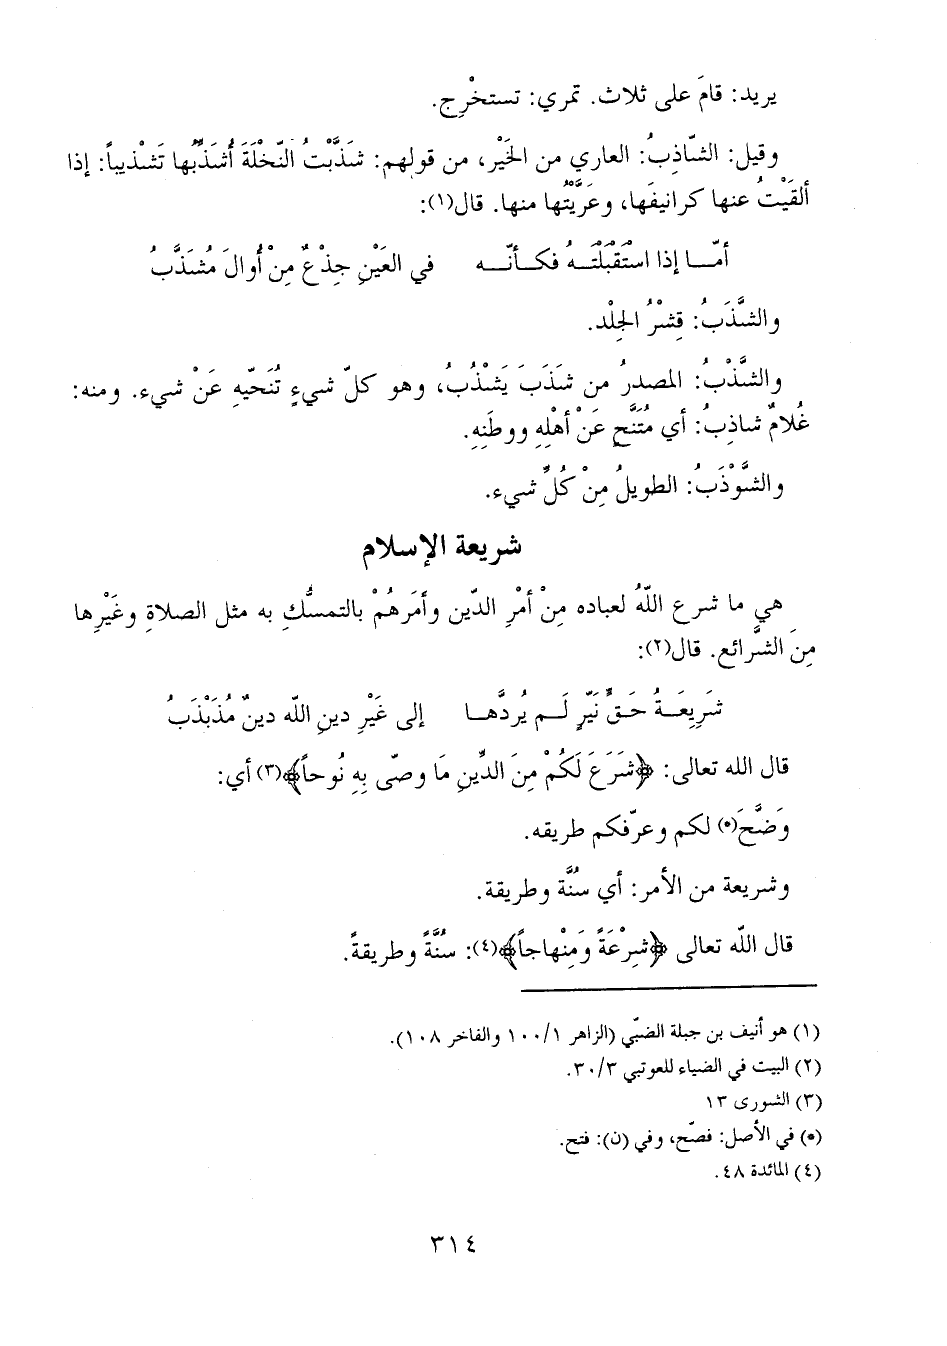 يريد: قامَ على ثلاث. تمري: تستخْرِج.
وقيل: الشّاذِبُ: العاري من الخَيْر، من قولهم: شَذَّبْتُ النّخْلَةَ أُشَذِّبُها تَشْذيباً: إذا
ألقَيْتُ عنها كرانيفَها، وعَرَّيْتُها منها. قال(١):
أمّـــا إذا اسْتَقْبَلْتَـــهُ فكــأنّـــه في العَيْنِ جِذْعٌ مِنْ أُوالَ مُشَذَّبُ
والشَّذَبُ: قِشْرُ الجِلْد.
والشَّذْبُ: المصدرُ من شَذَبَ يَشْذُبُ، وهو كلّ شيءٍ تُنَحّيهِ عَنْ شيء. ومنه:
غُلامٌ شاذِبُ: أي مُتَنَّحٍ عَنْ أهْلِهِ ووطَنِهِ.
والشَّوْذَبُ: الطويلُ مِنْ كُلِّ شيء.
شريعة الإسلام
هي ما شرع اللّهُ لعباده مِنْ أمْرِ الدّين وأمَرهُمْ بالتمسُّكِ به مثل الصلاةِ وغَيْرِها
مِنَ الشَّرائع. قال(٢):
شَرِيعَــةُ حَــقٍّ نَيّرٍ لَــم يُردَّهــا إلى غَيْرِ دينِ اللّه دينٌ مُذَبْذَبُ
قال الله تعالى: ﴿شَرَعَ لَكُمْ مِنَ الدِّينِ مَا وصّى بِهِ نُوحاً﴾(٣) أي:
وَضَّحَ(•) لكم وعرّفكم طريقه.
وشريعة من الأمر: أي سُنَّة وطريقة.
قال اللّه تعالى ﴿شِرْعَةً وَمِنْهاجاً﴾(٤): سُنَّةً وطريقةً.
(١) هو أنيف بن جبلة الضبّي (الزاهر ١/١٠٠ والفاخر ١٠٨).
(٢) البيت في الضياء للعوتبي ٣/٣٠.
(٣) الشورى ١٣
(•) في الأصل: فصّح، وفي (ن): فتح.
(٤) المائدة ٤٨.
٣١٤